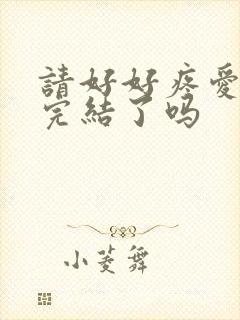 請好好疼愛
完結了吗
小菱舞